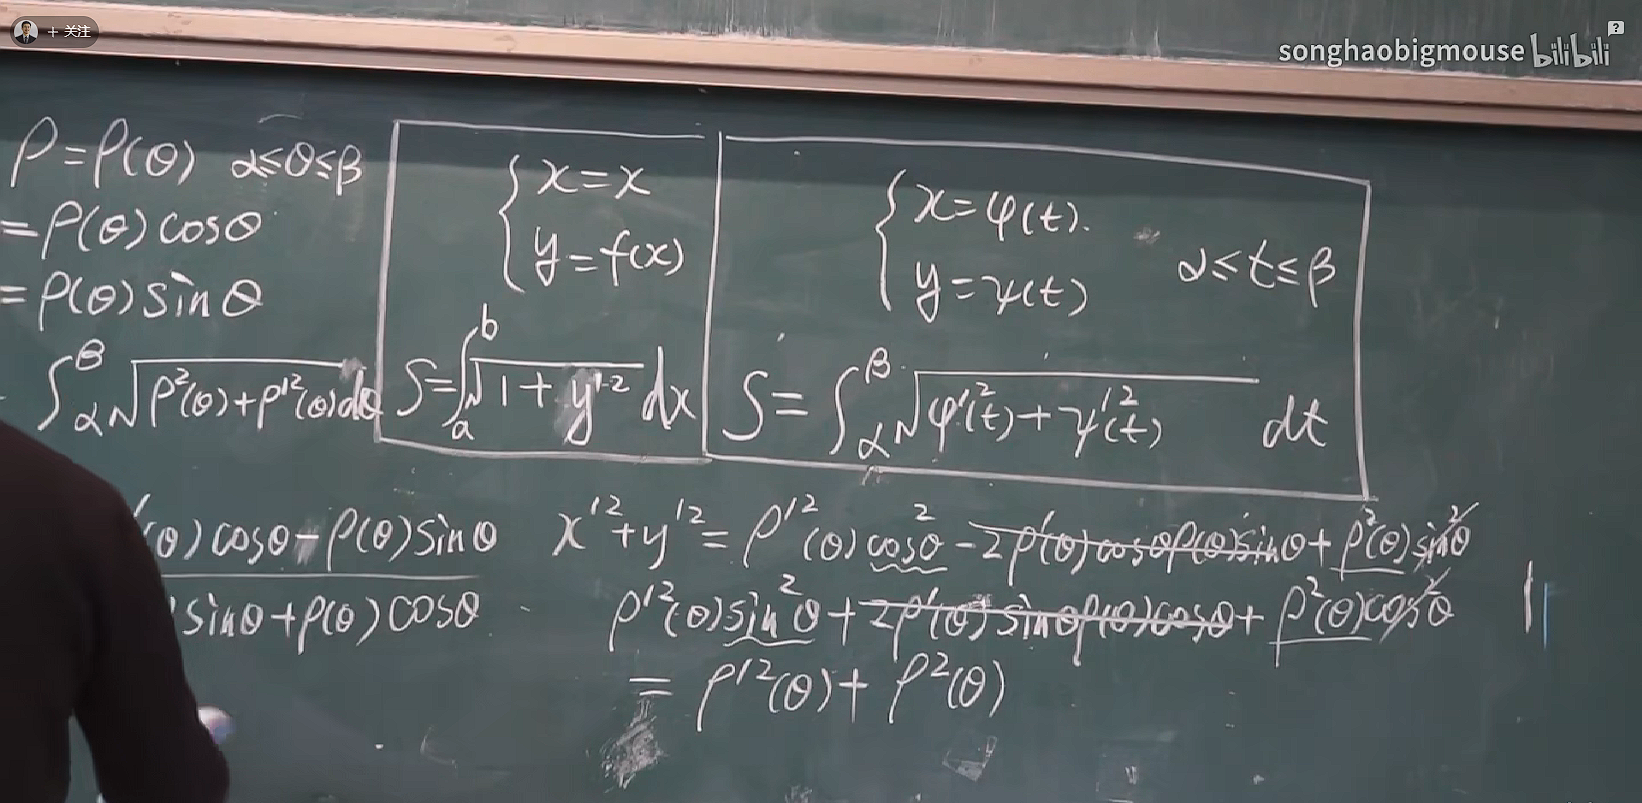 + 关注
songhaobigmouse bilibili
ρ=ρ(θ) α≤θ≤β
=ρ(θ)cosθ
=ρ(θ)sinθ
∫_α^β √(ρ²(θ)+ρ'²(θ))dθ
{x=x
y=f(x)
S=∫_a^b √(1+y'²) dx
{x=φ(t).
y=ψ(t)
α≤t≤β
S=∫_α^β √(φ'²(t)+ψ'²(t)) dt
'(θ)cosθ-ρ(θ)sinθ
sinθ+ρ(θ)cosθ
x'²+y'²=ρ'²(θ)cos²θ-2ρ'(θ)cosθρ(θ)sinθ+ρ²(θ)sin²θ
ρ'²(θ)sin²θ+2ρ'(θ)sinθρ(θ)cosθ+ρ²(θ)cos²θ
=ρ'²(θ)+ρ²(θ)